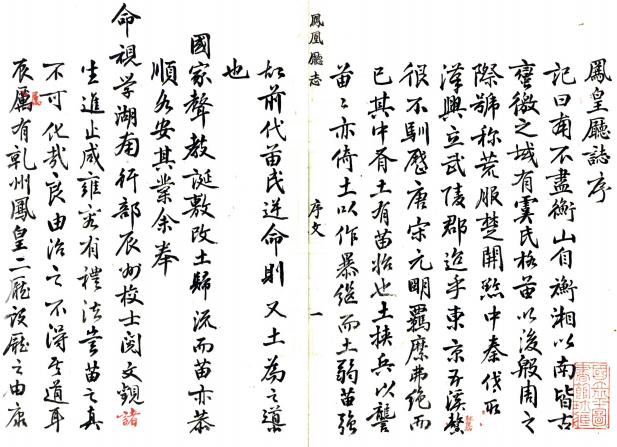 鳳皇廳誌序
記曰南不盡衡山自衡湘以南皆古
蠻徼之域有虞氏格苗以後殷周之
際號称荒服楚開黔中秦伐所
漢興立武陵郡迨乎東京五溪
很不馴歷唐宋元明羈縻弗絕而
已其中脊土有苗性也土挾兵以讐
苗苗亦倚土以作暴繼而土弱苗強
鳳凰廳志
序文
一
故前代苗氏逆命則又土為之導
也
國家聲教誕敷改土歸流而苗亦恭
順各安其業余奉
命視学湖南行部辰州校士閱文覲諸
生進止咸雍容有禮法豈苗之真
不可化哉良由治之不得其道耳
辰屬有乾州鳳皇二廳設廳之由康